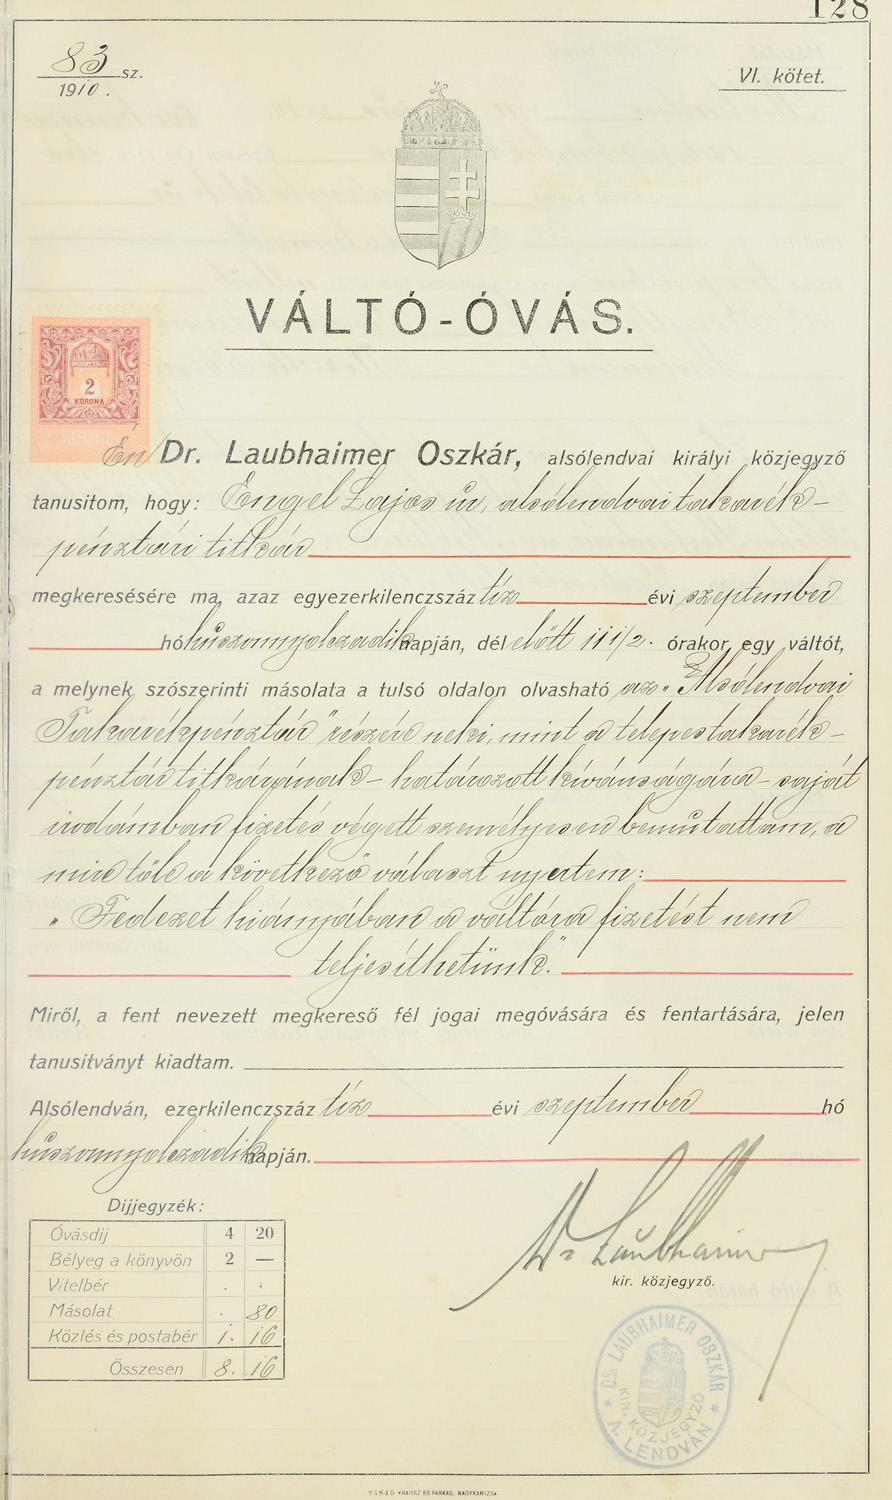 128
83 sz.
1910.
VI. kötet.
VÁLTÓ-ÓVÁS.
2
KORONA
Én Dr. Laubhaimer Oszkár, alsólendvai királyi közjegyző
tanusitom, hogy: Engel Lajos úr, alsólendvai takarék-
pénztári titkár
megkeresésére ma, azaz egyezerkilenczszáz tíz évi szeptember
hó huszonnyolczadik napján, dél előtt 11 1/2. órakor egy váltót,
a melynek szószerinti másolata a tulsó oldalon olvasható az „Alsólendvai
Takarékpénztár" részére neki, mint a telepes takarék-
pénztár titkárának – határozott kívánságára – saját
irodámban fizetés végett személyesen bemutattam, a
mire tőle a következő választ nyertem:
„Fedezet hiányában a váltóra fizetést nem
teljesíthetünk."
Miről, a fent nevezett megkereső fél jogai megóvására és fentartására, jelen
tanusitványt kiadtam.
Alsólendván, ezerkilenczszáz tíz évi szeptember hó
huszonnyolczadik napján.
Dijjegyzék:
Óvásdij 4 20
Bélyeg a könyvön 2 —
Vitelbér . .
Másolat . 80
Közlés és postabér 1. 16
Összesen 8. 16
Dr Laubhaimer
kir. közjegyző.
DR. LAUBHAIMER OSZKÁR
KIR. KÖZJEGYZŐ
* A. LENDVÁN *
26845 RAUSZ ÉS FARKAS, NAGYKANIZSA